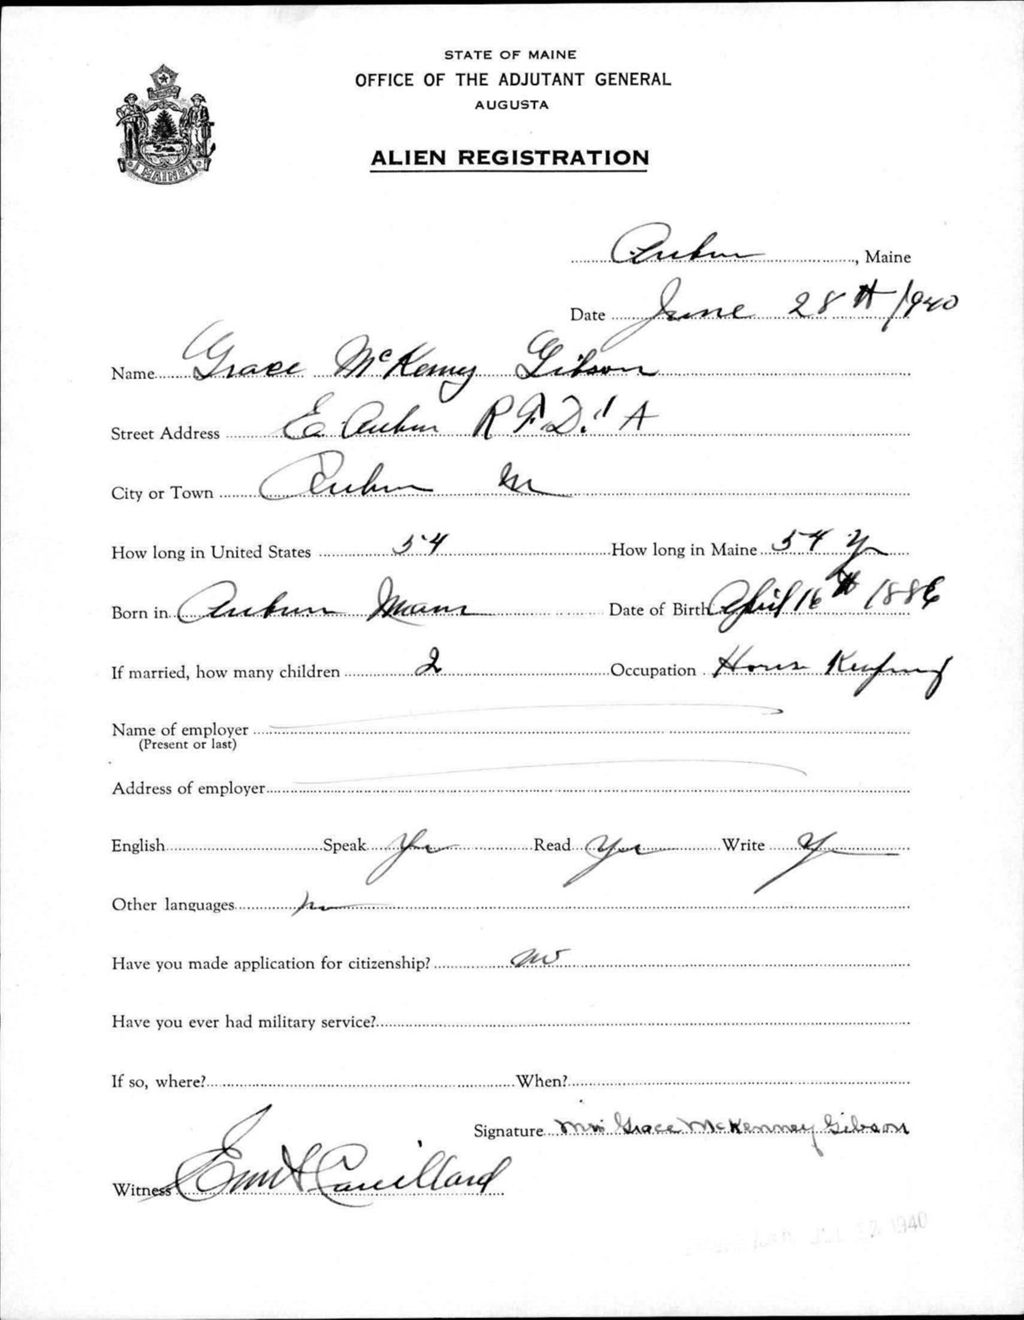 STATE OF MAINE
OFFICE OF THE ADJUTANT GENERAL
AUGUSTA
MAINE
ALIEN REGISTRATION
Auburn, Maine
Date June 28th 1940
Name Grace McKenney Gibson
Street Address E. Auburn R.F.D. 1 A
City or Town Auburn Me
How long in United States 54 How long in Maine 54 Yr
Born in Auburn Maine Date of Birth April 16th 1886
If married, how many children 2 Occupation House Keeping
Name of employer
(Present or last)
Address of employer
English Speak Yes Read Yes Write Yes
Other languages no
Have you made application for citizenship? no
Have you ever had military service?
If so, where? When?
Signature Mrs Grace McKenney Gibson
Witness
1940